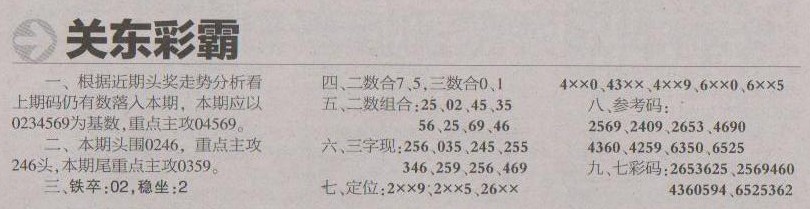 关东彩霸
一、根据近期头奖走势分析看
上期码仍有数落入本期，本期应以
0234569为基数,重点主攻04569。
二、本期头围0246，重点主攻
246头,本期尾重点主攻0359。
三、铁卒:02,稳坐:2
四、二数合7、5,三数合0、1
五、二数组合:25、02、45、35
56、25、69、46
六、三字现:256、035、245、255
346、259、256、469
七、定位:2××9、2××5、26××
4××0、43××、4××9、6××0、6××5
八、参考码:
2569、2409、2653、4690
4360、4259、6350、6525
九、七彩码:2653625、2569460
4360594、6525362